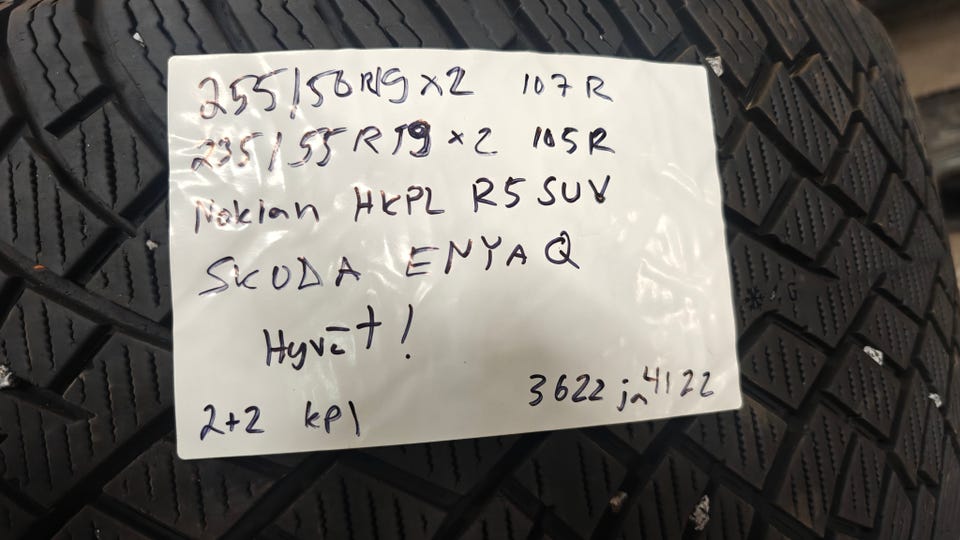 255/50R19x2 107R
235/55R19x2 105R
Nokian HKPL R5 SUV
SKODA ENYAQ
Hyvät!
3622 ja 4122
2+2 kpl